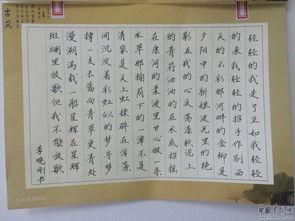 轻轻的我走了正如我轻轻
的来我轻轻的招手作别西
天的云彩那河畔的金柳是
夕阳中的新娘波光里的艳
影在我的心头荡漾软泥上
的青荇油油的在水底招摇
在康河的柔波里甘心做一条
水草那榆荫下的一潭不是
清泉是天上虹揉碎在浮藻
间沉淀着彩虹似的梦寻梦
撑一支长篙向青草更青处
漫溯满载一船星辉在星辉
斑斓里放歌但我不能放歌
李晓刚书
古风